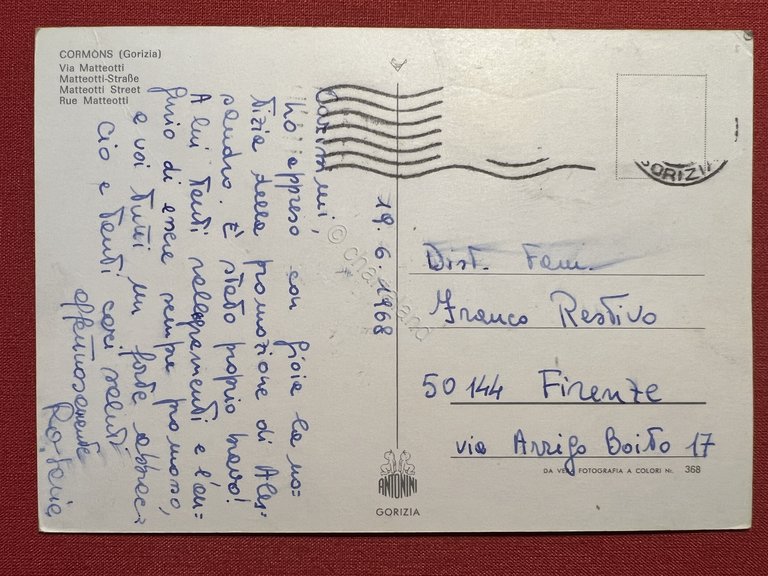 CORMÒNS (Gorizia)
Via Matteotti
Matteotti-Straße
Matteotti Street
Rue Matteotti
19.6.1968
Carissimi,
ho appreso con gioia la no-
tizia della promozione di Ales-
sandro. È stato proprio bravo!
A lui tanti rallegramenti e l'au-
gurio di essere sempre promosso,
e voi tutti un forte abbrac-
cio e tanti cari saluti
affettuosamente
GORIZIA
Dist. Fam.
Franco Restivo
50144 Firenze
via Arrigo Boito 17
DA VERA FOTOGRAFIA A COLORI Nr. 368
ANTONINI
GORIZIA